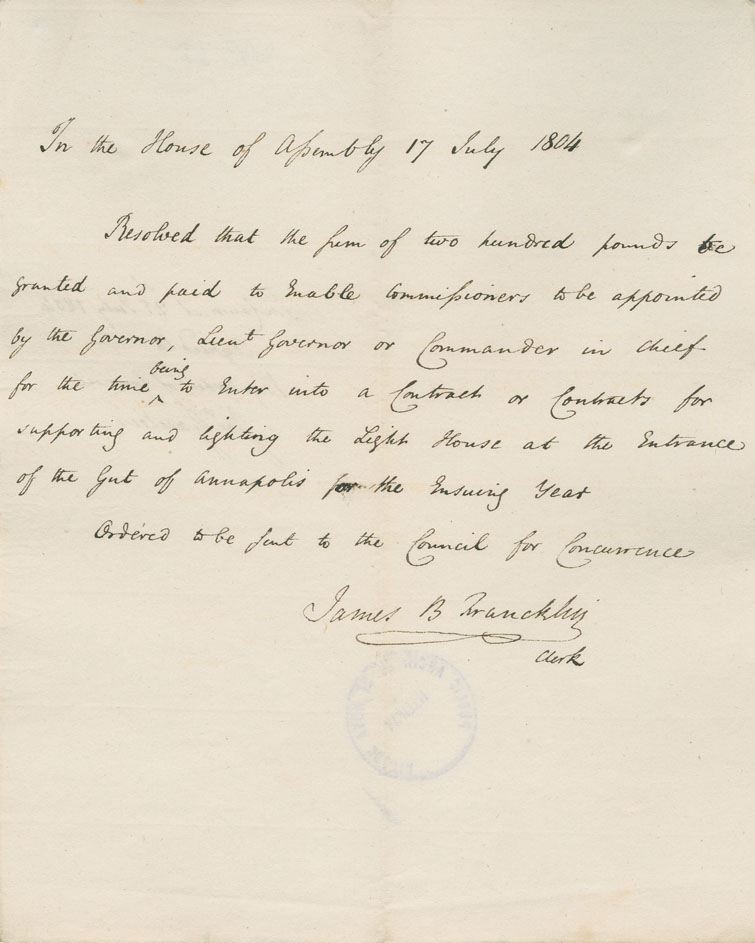 In the House of Assembly 17 July 1804
Resolved that the sum of two hundred pounds be
granted and paid to Enable Commissioners to be appointed
by the Governor, Lieut Governor or Commander in chief
for the time being to Enter into a Contract or Contracts for
supporting and lighting the Light House at the Entrance
of the Gut of Annapolis for the Ensuing Year
Ordered to be sent to the Council for Concurrence
James B Francklin
Clerk